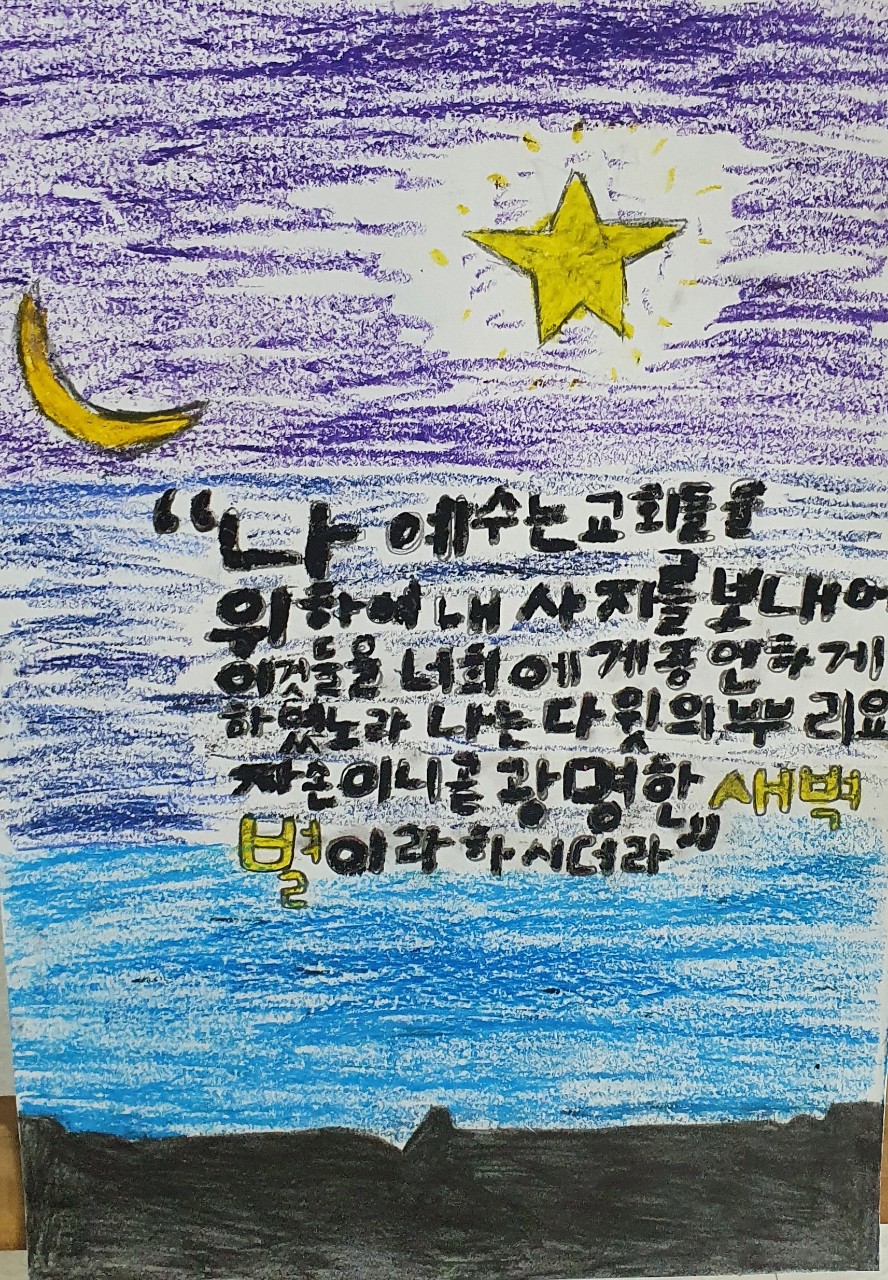 “나 예수는 교회들을
위하여 내 사자를 보내어
이것들을 너희에게 증언하게
하였노라 나는 다윗의 뿌리요
자손이니 곧 광명한 새벽
별이라 하시더라”